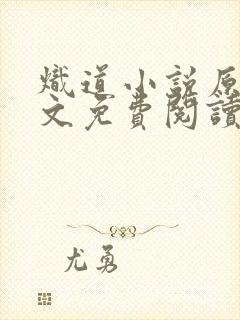 熾道小説原
文免費閱讀
尤勇